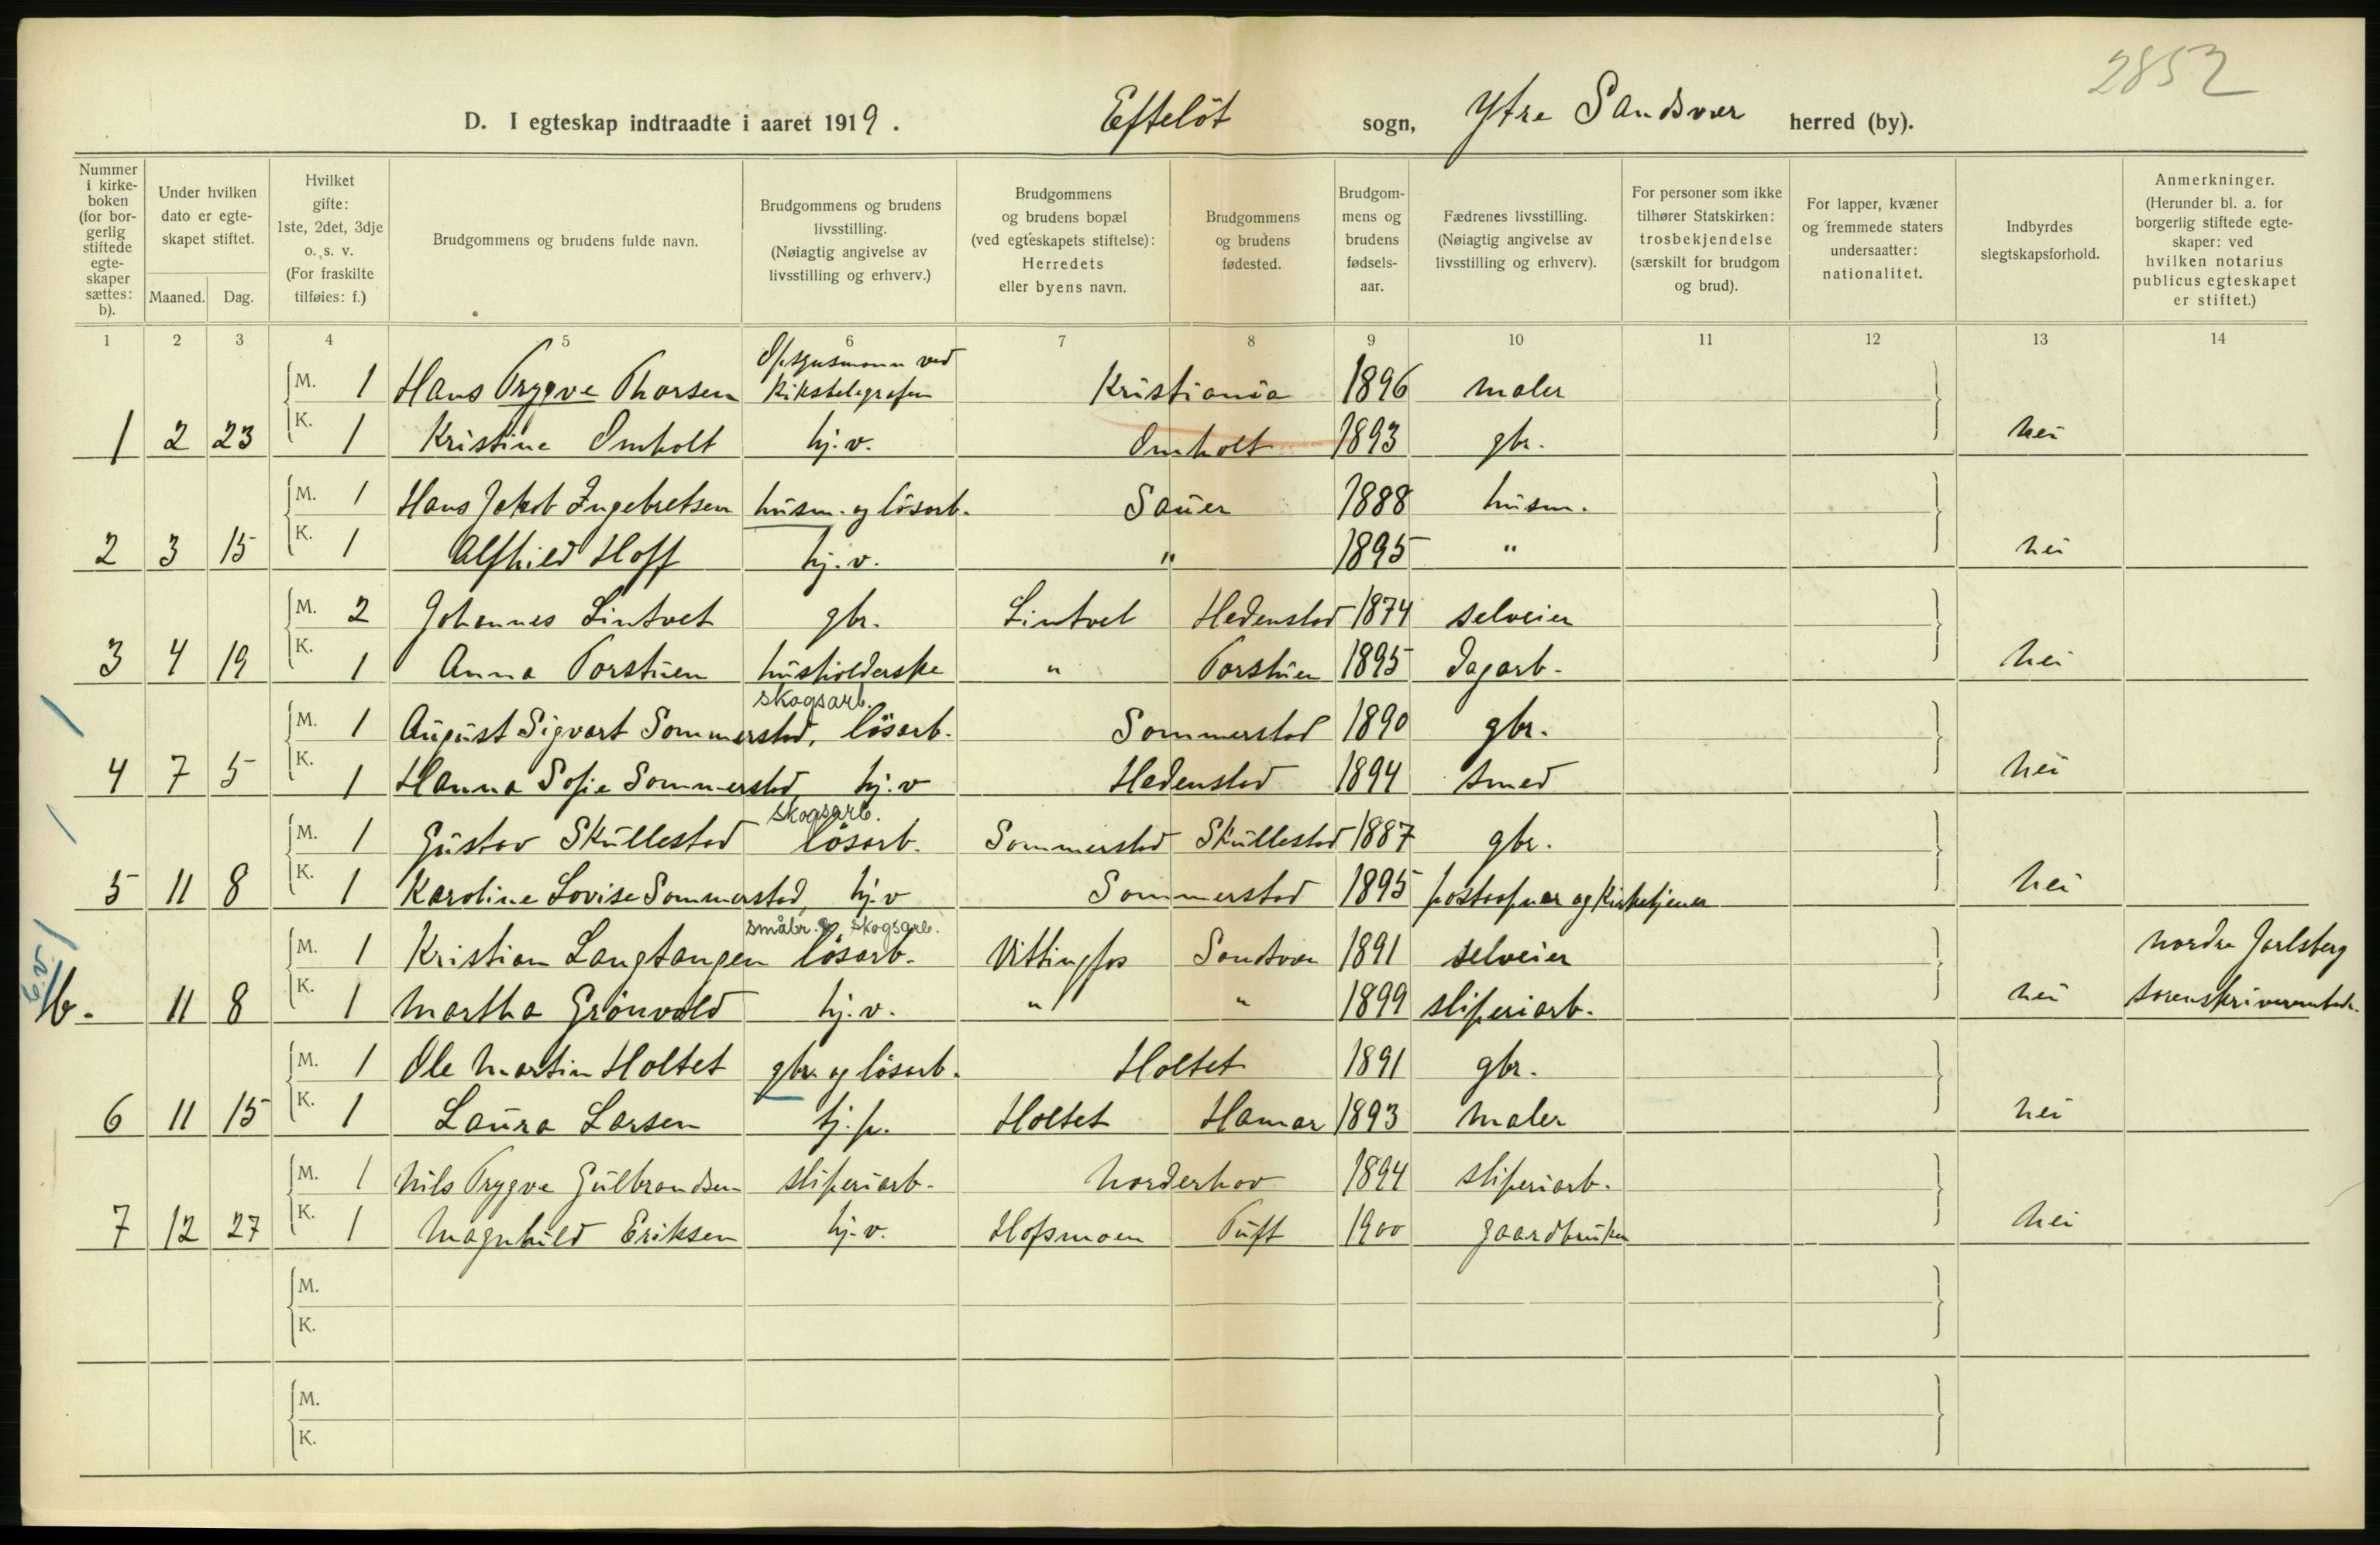 2852
D. I egteskap indtraadte i aaret 1919. Efteløt sogn, Ytre Sandsvær herred (by).
Nummer i kirke-boken (for bor-gerlig stiftede egte-skaper sættes: b).
Under hvilken dato er egte-skapet stiftet.
Maaned. Dag.
Hvilket gifte: 1ste, 2det, 3dje o. s. v. (For fraskilte tilføies: f.)
Brudgommens og brudens fulde navn.
Brudgommens og brudens livsstilling. (Nøiagtig angivelse av livsstilling og erhverv.)
Brudgommens og brudens bopæl (ved egteskapets stiftelse): Herredets eller byens navn.
Brudgommens og brudens fødested.
Brudgom-mens og brudens fødsels-aar.
Fædrenes livsstilling. (Nøiagtig angivelse av livsstilling og erhverv).
For personer som ikke tilhører Statskirken: trosbekjendelse (særskilt for brudgom og brud).
For lapper, kvæner og fremmede staters undersaatter: nationalitet.
Indbyrdes slegtskapsforhold.
Anmerkninger. (Herunder bl. a. for borgerlig stiftede egte-skaper: ved hvilken notarius publicus egteskapet er stiftet.)
1 2 3 4 5 6 7 8 9 10 11 12 13 14
Opsynsmann ved
M. 1 Hans Trygve Thorsen Rikstelegrafen Kristiania 1896 maler
1 2 23 K. 1 Kristine Omholt hj.v. Omholt 1893 gbr. nei
M. 1 Hans Jakob Ingebretsen husm. og løsarb. Sauer 1888 husm.
2 3 15 K. 1 Alfhild Hoff hj.v. " 1895 " nei
M. 2 Johannes Lintvet gbr. Lintvet Hedenstad 1874 selveier
3 4 19 K. 1 Anna Torstuen husholderske " Torstuen 1895 dagarb. nei
skogsarb.
M. 1 August Sigvart Sommerstad, løsarb. Sommerstad 1890 gbr.
4 7 5 K. 1 Hanna Sofie Sommerstad, hj.v Hedenstad 1894 smed nei
skogsarb.
M. 1 Gustav Skullestad løsarb. Sommerstad Skullestad 1887 gbr.
5 11 8 K. 1 Karoline Lovise Sommerstad, hj.v Sommerstad 1895 postaapner og kirketjener nei
småbr. og skogsarb.
M. 1 Kristian Langtangen løsarb. Vittingfos Sandsvær 1891 selveier Nordre Jarlsberg
b. 11 8 K. 1 Martha Grønvold hj.v. " " 1899 sliperiarb. nei sorenskriverembede.
M. 1 Ole Martin Holtet gbr. og løsarb. Holtet 1891 gbr.
6 11 15 K. 1 Laura Larsen tj.p. Holtet Hamar 1893 maler nei
M. 1 Nils Trygve Gulbrandsen sliperiarb. Norderhov 1894 sliperiarb.
7 12 27 K. 1 Magnhild Eriksen hj.v. Hofsmoen Tuft 1900 gaardbruker nei
M.
K.
M.
K.